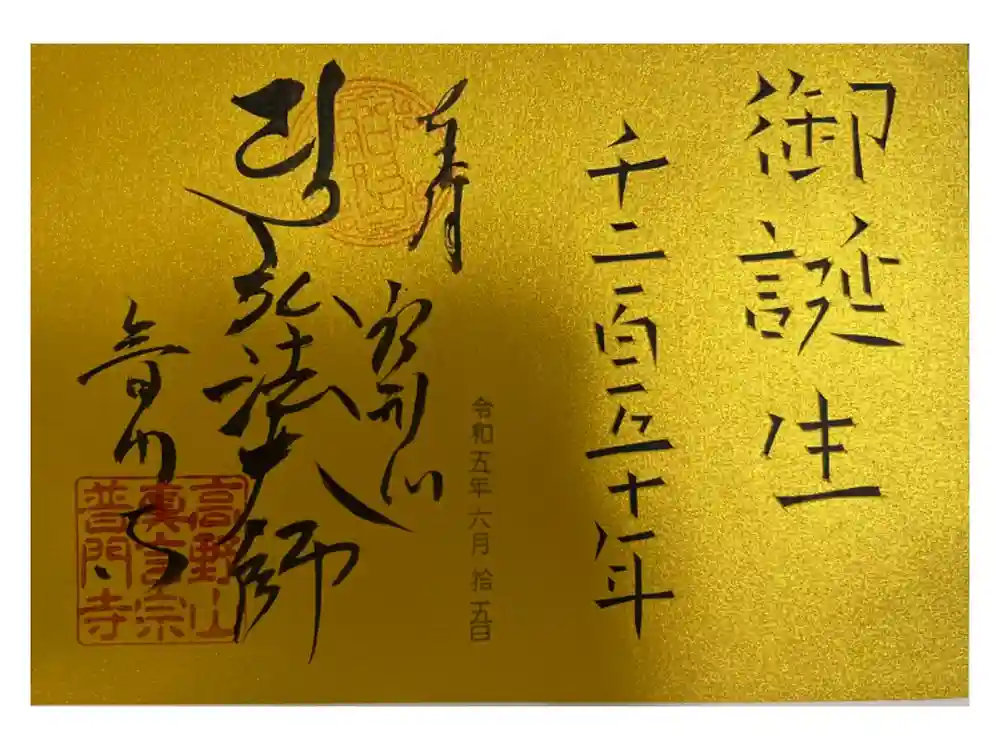 御誕生
千二百五十年
令和五年六月拾五日
奉拝
弘法大師
普門寺
高野山
真言宗
普門寺